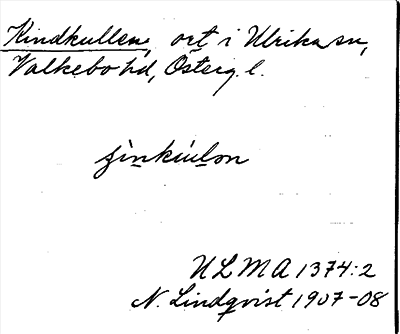 Kindkullen, ort i Ulrika sn,
Valkebo hd, Österg. l.
ʃìnkiulon
ULMA 1374:2
N. Lindqvist 1907-08